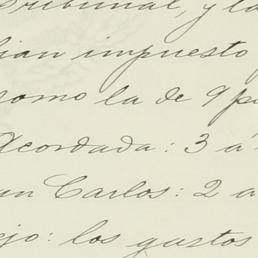 Tribunal, y la
impuesto
como la de 9 p
Acordada: 3 a
Carlos: 2 a
los gastos